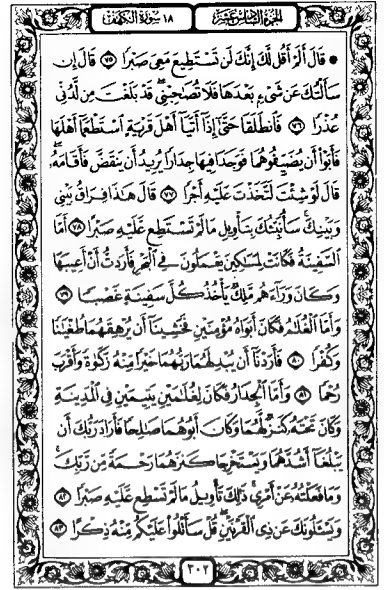 الجزء السادس عشر ١٨ سورة الكهف
• قَالَ أَلَمْ أَقُل لَّكَ إِنَّكَ لَن تَسْتَطِيعَ مَعِىَ صَبْرًا ٧٥ قَالَ إِن
سَأَلْتُكَ عَن شَىْءٍ بَعْدَهَا فَلَا تُصَاحِبْنِى قَدْ بَلَغْتَ مِن لَّدُنِّى
عُذْرًا ٧٦ فَانطَلَقَا حَتَّىٰ إِذَا أَتَيَا أَهْلَ قَرْيَةٍ اسْتَطْعَمَا أَهْلَهَا
فَأَبَوْا أَن يُضَيِّفُوهُمَا فَوَجَدَا فِيهَا جِدَارًا يُرِيدُ أَن يَنقَضَّ فَأَقَامَهُ
قَالَ لَوْ شِئْتَ لَتَّخَذْتَ عَلَيْهِ أَجْرًا ٧٧ قَالَ هَٰذَا فِرَاقُ بَيْنِى
وَبَيْنِكَ سَأُنَبِّئُكَ بِتَأْوِيلِ مَا لَمْ تَسْتَطِع عَّلَيْهِ صَبْرًا ٧٨ أَمَّا
السَّفِينَةُ فَكَانَتْ لِمَسَٰكِينَ يَعْمَلُونَ فِى الْبَحْرِ فَأَرَدتُّ أَنْ أَعِيبَهَا
وَكَانَ وَرَآءَهُم مَّلِكٌ يَأْخُذُ كُلَّ سَفِينَةٍ غَصْبًا ٧٩
وَأَمَّا الْغُلَٰمُ فَكَانَ أَبَوَاهُ مُؤْمِنَيْنِ فَخَشِينَآ أَن يُرْهِقَهُمَا طُغْيَٰنًا
وَكُفْرًا ٨٠ فَأَرَدْنَآ أَن يُبْدِلَهُمَا رَبُّهُمَا خَيْرًا مِّنْهُ زَكَوٰةً وَأَقْرَبَ
رُحْمًا ٨١ وَأَمَّا الْجِدَارُ فَكَانَ لِغُلَٰمَيْنِ يَتِيمَيْنِ فِى الْمَدِينَةِ
وَكَانَ تَحْتَهُ كَنزٌ لَّهُمَا وَكَانَ أَبُوهُمَا صَٰلِحًا فَأَرَادَ رَبُّكَ أَن
يَبْلُغَآ أَشُدَّهُمَا وَيَسْتَخْرِجَا كَنزَهُمَا رَحْمَةً مِّن رَّبِّكَ
وَمَا فَعَلْتُهُ عَنْ أَمْرِى ذَٰلِكَ تَأْوِيلُ مَا لَمْ تَسْطِع عَّلَيْهِ صَبْرًا ٨٢
وَيَسْـَٔلُونَكَ عَن ذِى الْقَرْنَيْنِ قُلْ سَأَتْلُوا۟ عَلَيْكُم مِّنْهُ ذِكْرًا ٨٣
٣٠٢